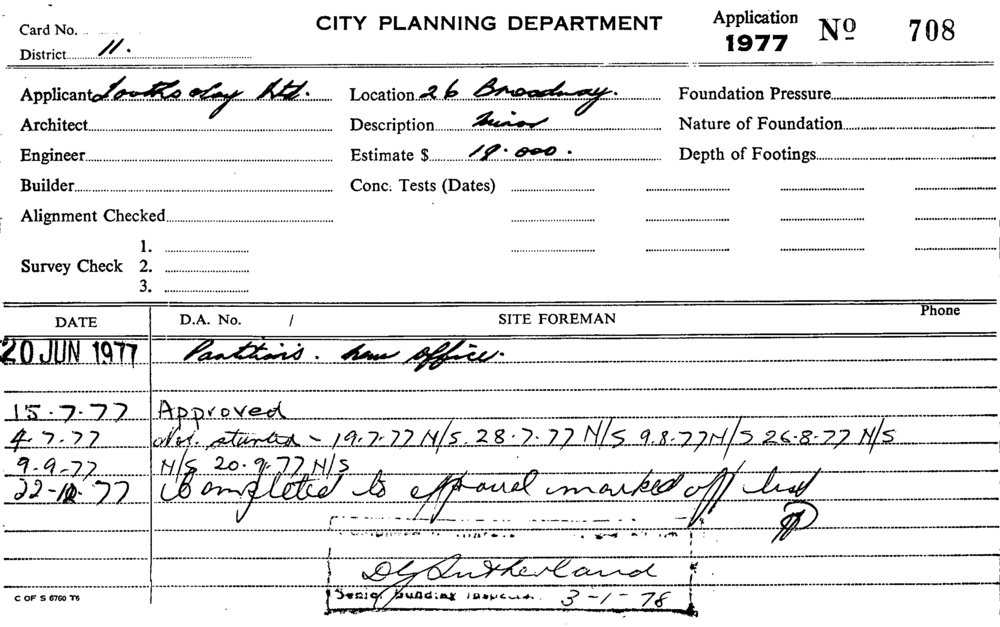 CITY PLANNING DEPARTMENT
Application
1977 Nº 708
Card No.
District 11.
Applicant Ltd.
Location 26 Broadway.
Foundation Pressure
Architect
Description Minor
Nature of Foundation
Engineer
Estimate $ 19.000.
Depth of Footings
Builder
Conc. Tests (Dates)
Alignment Checked
1.
Survey Check 2.
3.
DATE D.A. No. / SITE FOREMAN Phone
20 JUN 1977 new office.
15.7.77 Approved
4.7.77 Not started - 19.7.77 N/S. 28.7.77 N/S 9.8.77 N/S 26.8.77 N/S
9.9.77 N/S 20.9.77 N/S
77 Completed to approval marked off
Sutherland
Senior Building Inspector. 3-1-78
C OF S 6760 T6